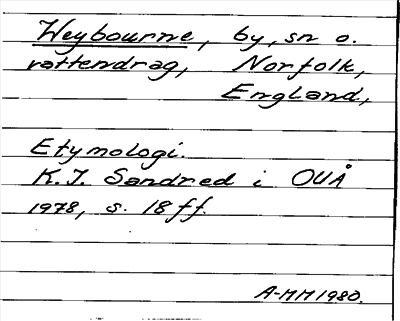 Weybourne, by, sn o.
vattendrag, Norfolk,
England,
Etymologi.
K.I. Sandred i OUÅ
1978, s. 18 ff.
A-MM 1980.